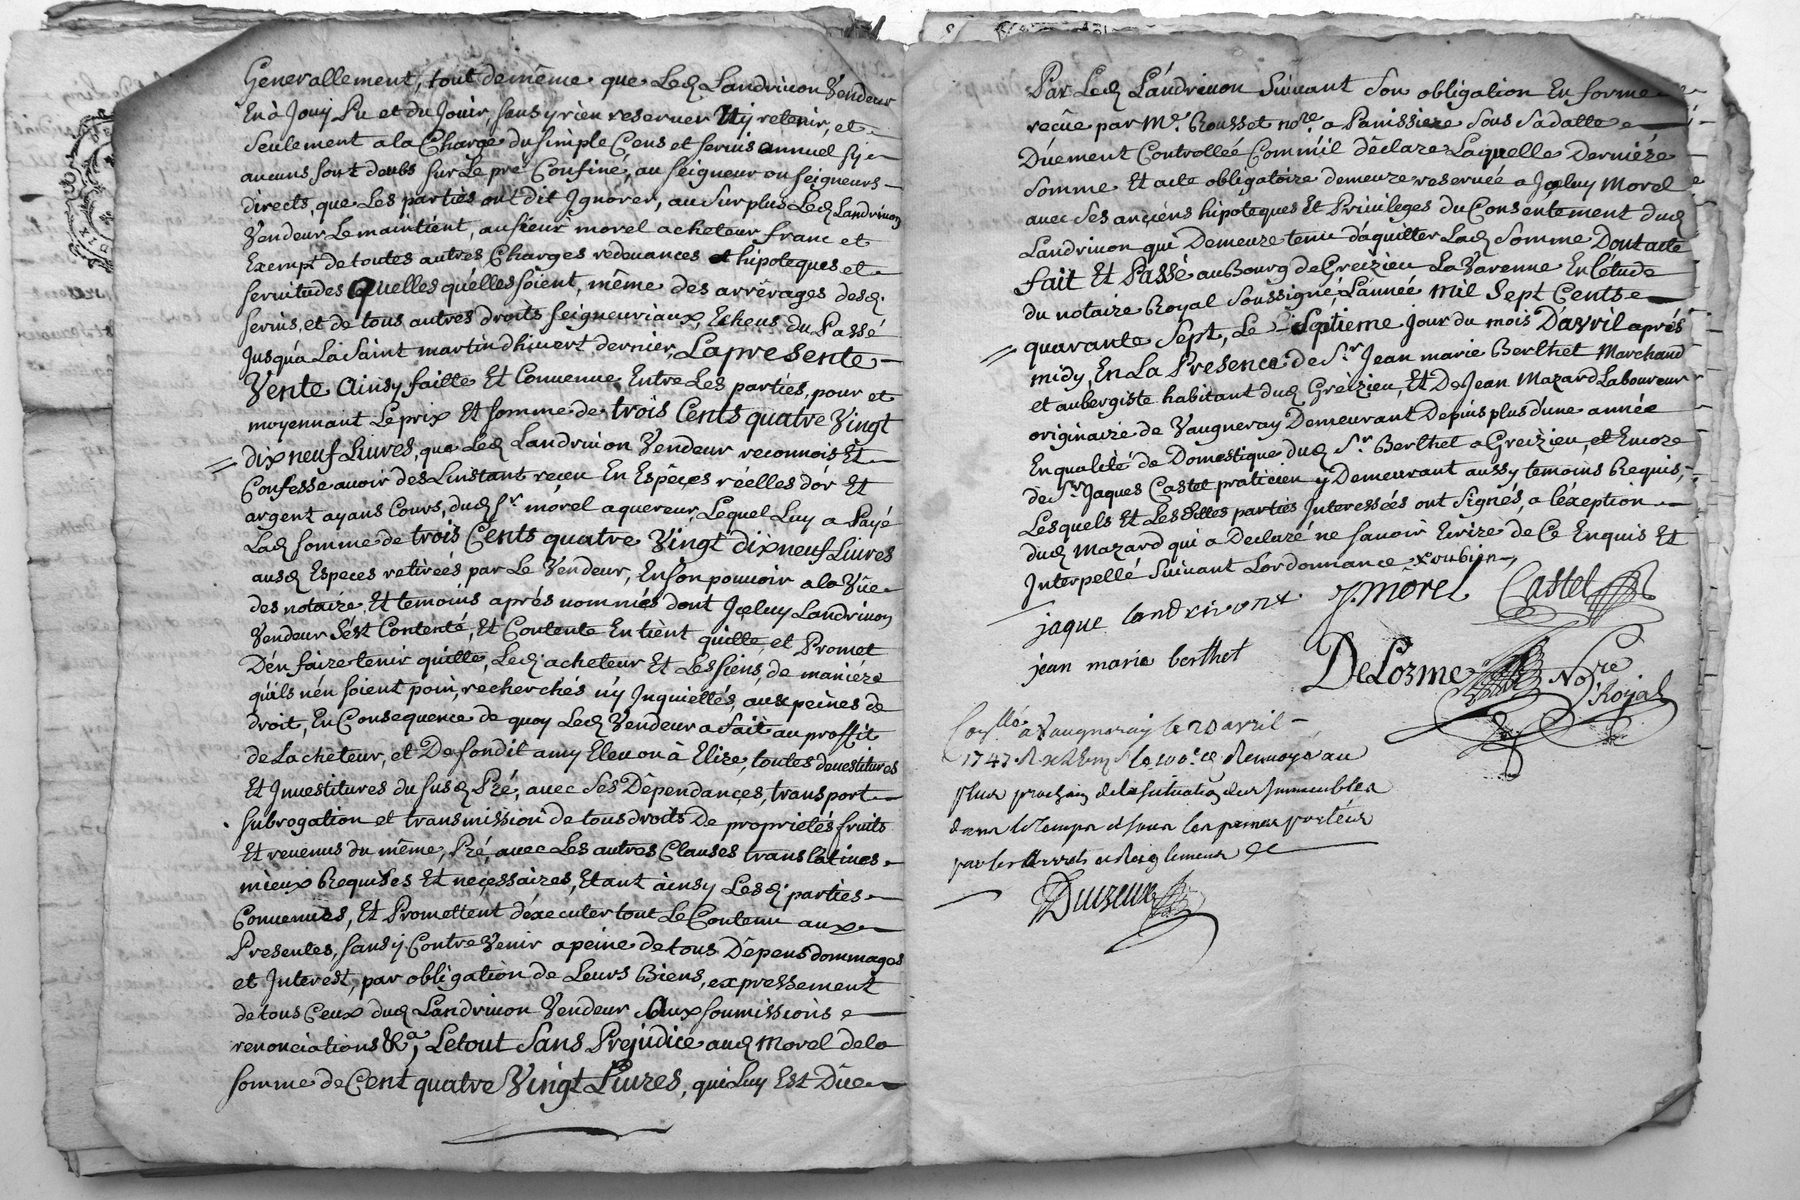 Generallement, tout demême que Led Landrivon Vendeur
En à Jouy Pu et du Jouir, sans y rien reserver Ny retenir, et
seulement a la Charge du simple Cens et servis annuel sy
aucuns sont deubs sur Le pré Confiné, au seigneur ou seigneurs
directs, que Les parties ont dit Ignorer, au surplus Led Landrivon
Vendeur Le maintient, au sieur morel acheteur franc et
Exempt de toutes autres Charges redevances et hipoteques et
servitudes Quelles quélles soient, même des arrérages desd.
servis, et de tous autres droits seigneuriaux, Echeus du Passé
Jusquá La saint martin dhivert dernier, La presente
Vente Ainsy faitte Et Convenue Entre Les parties, pour et
moyennant Le prix Et somme de trois Cents quatre Vingt
dix neuf Livres, que Led Landrivon Vendeur reconnois Et
Confesse avoir des Linstant reçeu En Espêçes réelles dór Et
argent ayans Cours, dud Sr. mórel aquereur, Lequel Luy a Payé
Lad somme de trois Cents quatre Vingt dix neuf Livres
ausd Especes retirées, par Le Vendeur, En son pouvoir a la Vüe
des notaire Et temoins aprés nommés dont Jçeluy Landrivon
Vendeur s'ést Contenté, Et Contente En tient quitte, et Promet
D'én faire tenir quitte, Led. acheteur Et Les siens, de maniére
quils n'én soient poin, recherchés n'y Inquiettés, aux peines de
droit, En Consequence de quoy Led Vendeur a fait au proffit
de Lacheteur, et De son dit amy Eleu ou à Elire, toutes devestitures
Et Jnvestitures du susd Pré, avec ses Dépendançes, transport
subrogation et transmission de tous droits De proprietés fruits
Et revenus du même, Pré, avec Les autres Clauses translatives
mieux Requises Et neçessaires, Etant ainsy Lesd. parties
Convenuës, Et Promettent d'éxecuter tout Le Contenu aux
Presentes, sans y Contrevenir a peine de tous Dépens dommages
et Interest, par obligation de Leurs Biens, expressement
de tous Ceux dud Landrivon Vendeur Aux soumissions
renonciations &a, Le tout Sans Prejudice aud Morel de la
somme de Cent quatre Vingt Livres, qui Luy Est Düe
Par Led Lándrivon Suivant Son obligation En forme
reçûe par Me. Rousset nore. a Panissiere Sous Sa datte
Düement Controlleé Comm'il déclare Laquelle Derniére
Somme Et acte obligatoire demeure reservée a Jçeluy Morel
avec Ses ançiens hipoteques Et Privileges du Consentement dud
Landrivon qui Demeure tenu dáquitter Lad Somme Dont acte
fait Et Passé au Bourg de Greizieu La Varenne En Létude
du notaire Royal Soussigné, Lannée mil Sept Cents
quarante Sept, Le Septieme Jour du mois D'avril aprés
midy, En La Presence de Sr. Jean marie Berthet Marchand
et aubergiste habitant dud Gréizieu, Et De Jean Mazard Laboureur
originaire de Vaugneray Demeurant Depuis plus d'une année
En qualité de Domestique dud Sr. Berthet a Greizieu, et Encore
de Sr. Jaques Castet praticien y Demeurant aussy temoins Requis;
Lesquels Et Les dittes parties Interessées ont Signés, a Léxeption
dud Mazard qui a Declaré ne savoir Ecrire de Ce Enquis Et
Interpellé Suivant Lordonnance
jaque landrivont J. morel Castet
jean marie berthet
DeLorme Nore Royal
Collé. a Vaugneray le avril
1747 Renvoyé au
plus prochain de la situation des immeubles
dans le temps et sous les peines portées
par les arrets et Reiglements